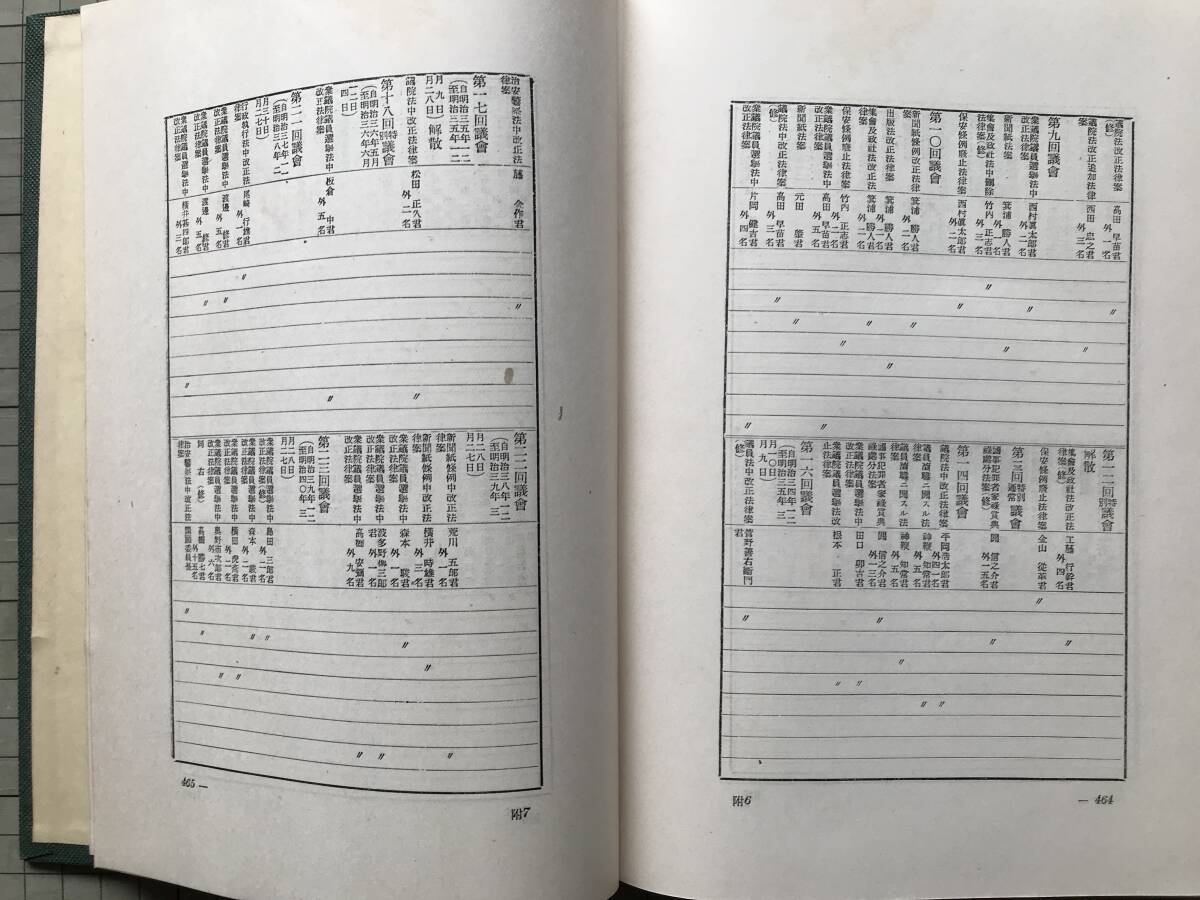 議院法改正法律案
(修)
高田 早苗君
外一名
議院法改正追加法律
案
西田 忠之君
外三名
第九回議會
衆議院議員選擧法中
改正法律案
西村眞太郎君
外二名
新聞紙法案
箕浦 勝人君
外二名
集會及政社法中删除
法律案(修)
竹内 正志君
外三名
保安條例廢止法律案
西村眞太郎君
外二名
第一〇回議會
新聞紙條例改正法律
案
箕浦 勝人君
外二名
出版法改正法律案
集會及政社法改正法
律案
箕浦 勝人君
外二名
保安條例廢止法律案
竹内 正志君
外二名
衆議院議員選擧法中
改正法律案
高田 早苗君
外五名
新聞紙法案
元田 肇君
議院法中改正法律案
(修)
高田 早苗君
外三名
衆議院議員選擧法中
改正法律案
片岡 健吉君
外四名
第一二回特別議會
解散
集會及政社法改正法
律案(修)
工藤 行幹君
外四名
保安條例廢止法律案
金山 從革君
外一名
第一三回議會
國事犯罪者家祿賞典
祿處分法案(修)
關 信之介君
外一五名
第一四回議會
議院法中改正法律案
平岡浩太郎君
外四一名
議員瀆職ニ關スル法
律案
神鞭 知常君
外五名
議員瀆職ニ關スル法
律案
神鞭 知常君
外五名
國事犯罪者家祿賞典
祿處分法案
關 信之介君
外一三名
衆議院議員選擧法中
改正法律案
田口 卯吉君
外二名
衆議院議員選擧法改
止法律案
根本 正君
第一六回議會
(自明治三四年一二
月一〇日
至明治三五年三
月九日)
議員法中改正法律案
(修)
菅野善右衞門
君
附6
— 464
治安警察法中改正法
律案
金作君
第一七回議會
(自明治三五年一二
月九日
至明治三五年一二
月二八日)解散
議院法中改正法律案
松田 正久君
外二名
第十八回特別議會
(自明治三六年五月
一二日
至明治三六年六月
四日)
衆議院議員選擧法中
改正法律案
板倉 中君
外五名
第二一回議會
(自明治三七年一一
月三十日
至明治三八年二
月二七日)
行政執行法中改正法
律案
尾崎 行雄君
外 名
衆議院議員選擧法中
改正法律案
渡邊 修君
外五名
衆議院議員選擧法中
改正法律案
横井甚四郎君
外三名
第二二回議會
(自明治三八年一二
月二八日
至明治三九年三
月二七日)
新聞紙條例中改正法
律案
荒川 五郎君
外一名
新聞紙條例中改正法
律案
横井 時雄君
外三名
衆議院議員選擧法中
改正法律案
森本 駿君
外一名
衆議院議員選擧法中
改正法律案
波多野傳三郎
君 外一名
衆議院議員選擧法中
改正法律案
高梱 安剝君
外九名
第二三回議會
(自明治三九年一二
月二八日
至明治四〇年三
月二七日)
衆議院議員選擧法中
改正法律案(修)
島田 三郎君
外一名
衆議院議員選擧法中
改正法律案
森本 駿君
外二名
衆議院議員選擧法中
改正法律案
横田 虎彦君
外一名
衆議院議員選擧法中
改正法律案
奥野市次郎君
外六名
同 右(修)
高橋 勝七君
外十五名
治安警察法中改正法
律案
請願委員長
465 —
附7